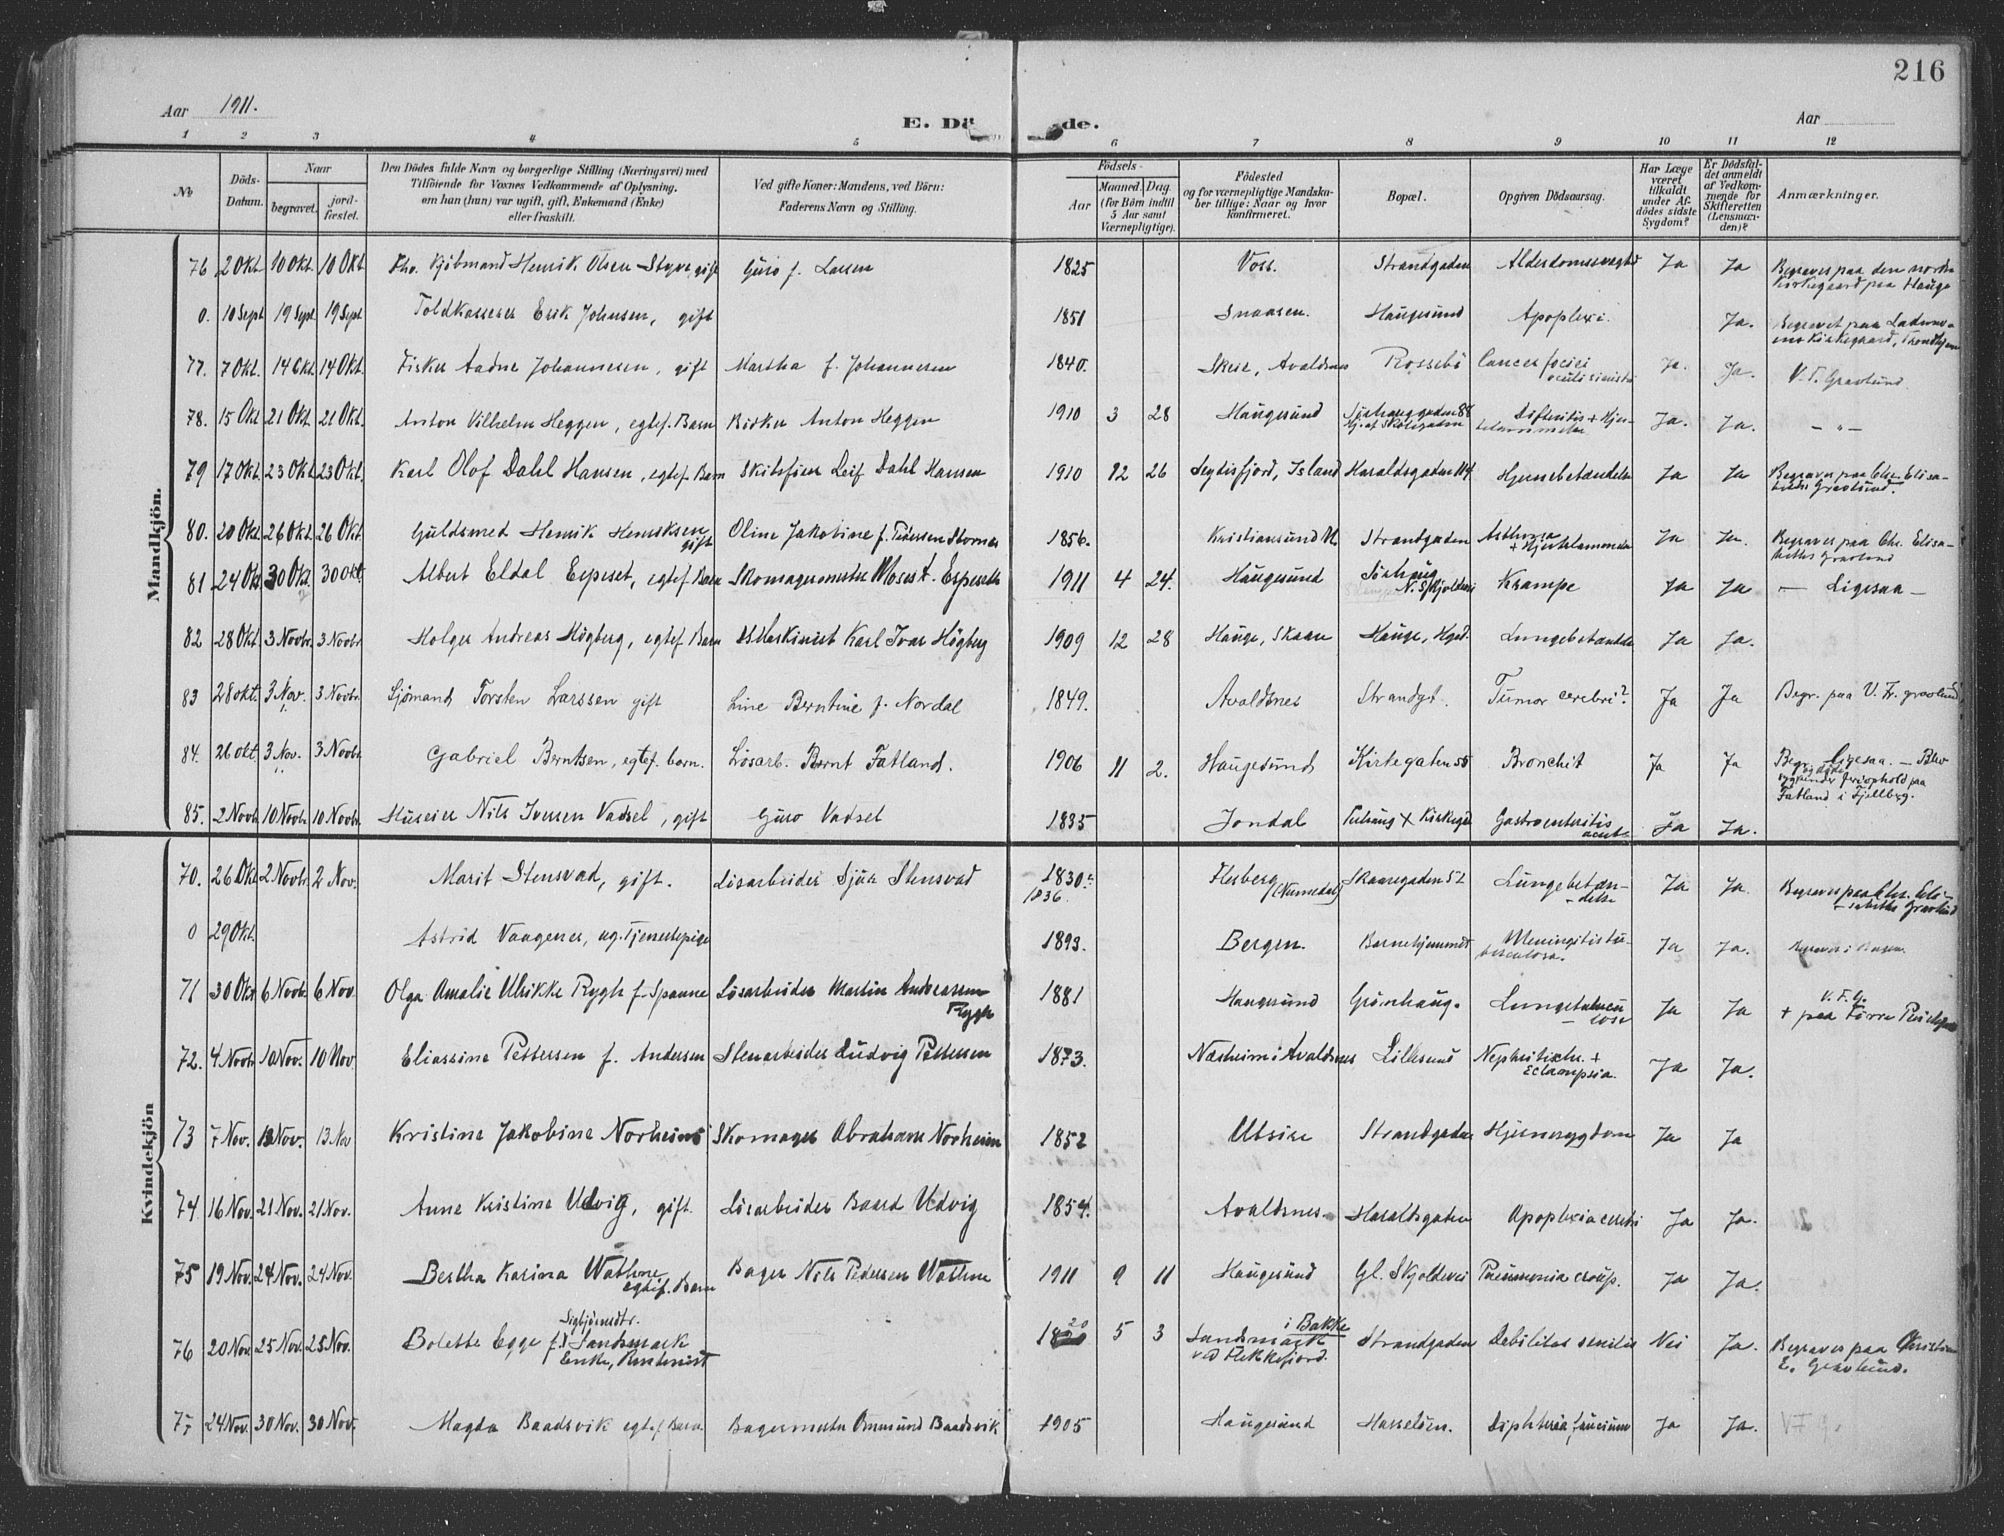 216
Aar 1911.
E. Dö de.
Aar
1 2 3 4 5 6 7 8 9 10 11 12
No
Döds-Datum.
Naar
begravet.
jord-fæstet.
Den Dödes fulde Navn og borgerlige Stilling (Næringsvei) med
Tilföiende for Voxnes Vedkommende af Oplysning,
om han (hun) var ugift, gift, Enkemand (Enke)
eller fraskilt.
Ved gifte Koner: Mandens, ved Börn:
Faderens Navn og Stilling.
Födsels-
Aar
Maaned. Dag.
(for Börn indtil
5 Aar samt
Værnepligtige).
Födested
og for værnepligtige Mandska-
ber tillige: Naar og hvor
konfirmeret.
Bopæl.
Opgiven Dödsaarsag.
Har Læge
været
tilkaldt
under Af-
dödes sidste
Sygdom?
Er Dödsfal-
det anmeldt
af Vedkom-
mende for
Skifteretten
(Lensman-
den)?
Anmærkninger.
Mandkjön.
76 2 Okt. 10 Okt 10 Okt Fhv. Kjöbmand Henrik Olsen Styve gift Guro f. Larsen 1825 Voss. Strandgaden Ja Ja Begraves paa den nordre Kirkegaard paa Hauge
0. 10 Sept 19 Sept. 19 Sept Toldkasserer Erik Johnsen, gift 1851 Snaasen. Haugesund Apoplexi. Ja. Begravet paa Kirkegaard, Trondhjem
77. 7 Okt. 14 Okt. 14 Okt. Fisker Aadne Johannesen, gift Martha f. Johannesen 1840. Skeie, Avaldsnes Rossebö Cancer faciei oculi sinistri Ja. Ja. V. F. Gravlund.
78. 15 Okt 21 Okt. 21 Okt. Anton Vilhelm Heggen, egtef. Barn Birker Anton Heggen 1910 3 28 Haugesund Ja. Ja. — " —
79 17 Okt. 23 Okt 23 Okt. Karl Olof Dahl Hansen, egtef. Barn Leif Dahl Hansen 1910 12 26 Seydisfjord, Island Haraldsgaden 114 Hjernebetændelse Ja Ja Begraves paa Chr. Elisabeths Gravlund.
80. 20 Okt. 26 Okt. 26 Okt Guldsmed Henrik Henriksen gift Oline Jakobine f. Pedersen 1856. Kristiansund N. Strandgaden Asthma + Hjertelammelse Ja Ja. Begraves paa Chr. Elisabeths Gravlund
81 24 Okt 30 Okt. 30 Okt. Albert Eldal Espeset, egtef. Barn Skomagermester Moses Espeseth 1911 4 24. Haugesund Sörhaug N. Skjoldevei Krampe Ja Ja — Ligesaa —
82 28 Okt. 3 Novbr. 3 Novbr Holger Andreas Högberg, egtef. Barn Maskinist Karl Ivar Högberg 1909 12 28 Hauge, Skaare Hauge, Hgsd. Lungebetændelse Ja Ja.
83 28 okt. 3 Nov. 3 Novbr. Sjömand Torsten Larssen gift Line Berntine f. Nordal 1849. Avaldsnes Strandgt. Tumor cerebri? Ja Ja Begr. paa V. Fr. gravlund
84. 26 okt. 3 Nov. 3 Novbr. Gabriel Berntsen, egtef. barn. Løsarb. Bernt Fatland. 1906 11 2. Haugesund Kirkegaten 55 Bronchit Ja Ja Begr. Ligesaa. — Blev syg under ferieophold paa Fatland i Fjellberg.
85. 2 Novbr 10 Novbr 10 Novbr Huseier Nils Iversen Vadset, gift Guro Vadset 1835 Jondal Gastroenteritis acut. Ja Ja.
Kvindekjön
70. 26 Okt 2 Novbr. 2 Nov. Marit Stensvad, gift. Lösarbeider Sjur Stensvad 1830. 1836. Flesberg (Numedal) Skaaregaden 52 Lungebetæn-delse Ja Ja. Begraves paa Chr. Elisabeths Gravlund
0 29 Okt. Astrid Vaagenes, ug. Tjenestepige 1893. Bergen. Barnehjemmet Meningitis tuberculosa. Ja Ja. Begraves i Bergen.
71 30 Okt 6 Novbr. 6 Nov. Olga Amalie Ulrikke Rygh f. Spanne Lösarbeider Martin Andreassen Rygh 1881 Haugesund Grönhaug. Lungetuberculose Ja Ja V. F. G.
72. 4 Novbr 10 Nov. 10 Nov. Eliassine Pettersen f. Andersen Stenarbeider Ludvig Pettersen 1873. Næsheim i Avaldsnes Lillesund Nephritis chr. + Eclampsia. Ja Ja.
73 7 Nov. 13 Nov. 13 Nov Kristine Jakobine Norheim Skomager Abraham Norheim 1852 Utsire Strandgaden Hjernesygdom Ja Ja
74. 16 Nov. 21 Nov. 21 Nov. Anne Kristine Udvig, gift. Lösarbeider Baard Udvig 1854. Avaldsnes. Haraldsgaten Apoplexia cerebri Ja Ja.
75 19 Nov. 24 Nov. 24 Nov. Bertha Karina Wathne egtef. Barn Bager Nils Pedersen Wathne 1911 9 11 Haugesund Gl. Skjoldevei Pneumonia croup. Ja Ja.
76 20 Nov. 25 Nov. 25 Nov. Bolette Egge f. Sigbjörnsdtr. Sandsmark Enke, 1820 5 3 Sandsmark i Bakke ved Flekkefjord. Strandgaden Debilitas senilis Nei Ja. Begraves paa Christian E. Gravlund.
77 24 Nov. 30 Nov. 30 Nov. Magda Baadsvik egtef. Barn. Bagermester Omund Baadsvik 1905 Haugesund Hasselöen. Diphteria faucium Ja Ja.